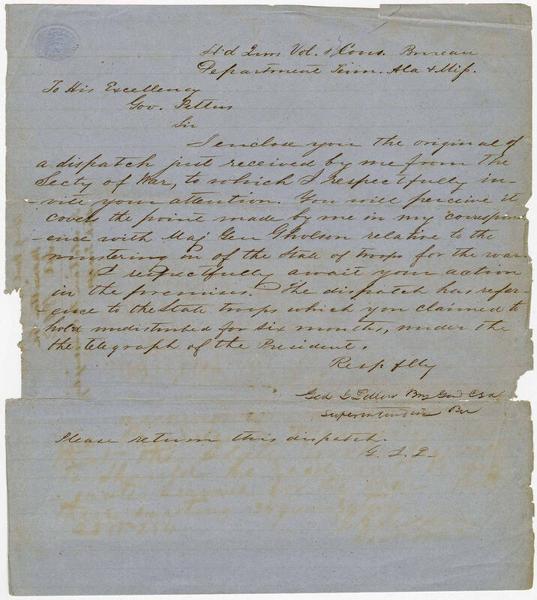 Hd Qrs Vol. & Cons. Bureau
Department Tenn. Ala & Miss.
To His Excellency
Gov. Pettus
Sir
I enclose you the original of
a dispatch just received by me from the
Secty of War, to which I respectfully in-
-vite your attention. You will perceive it
covers the point made by me in my correspond
-ence with Maj Gen Gholson relative to the
mustering in of the State troops for the war.
I respectfully await your action
in the premises. The dispatch has refer-
-ence to the State troops which you claimed to
hold undisturbed for six months, under the
the telegraph of the President.
Resp f lly
Gid J. Pillow Brg Gen C S A
Superintendent Bu
Please return this dispatch.
G. J. P.